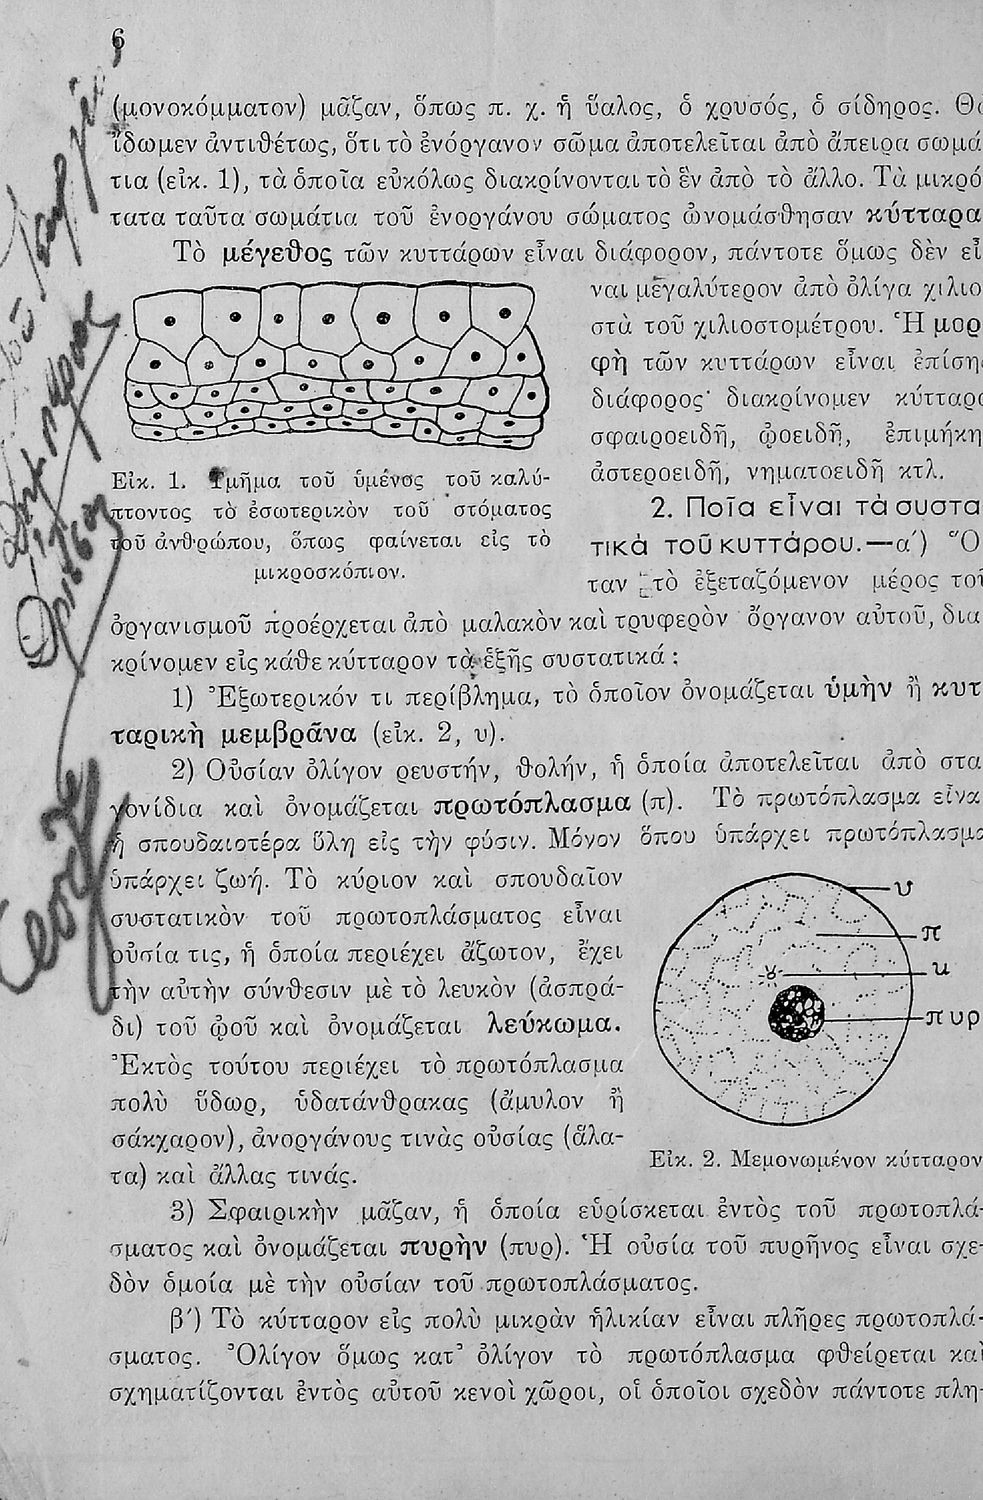 6
(μονοκόμματον) μᾶζαν, ὅπως π. χ. ἡ ὕαλος, ὁ χρυσός, ὁ σίδηρος. Θὰ
ἴδωμεν ἀντιθέτως, ὅτι τὸ ἐνόργανον σῶμα ἀποτελεῖται ἀπὸ ἄπειρα σωμά
τια (εἰκ. 1), τὰ ὁποῖα εὐκόλως διακρίνονται τὸ ἓν ἀπὸ τὸ ἄλλο. Τὰ μικρό
τατα ταῦτα σωμάτια τοῦ ἐνοργάνου σώματος ὠνομάσθησαν κύτταρα
Τὸ μέγεθος τῶν κυττάρων εἶναι διάφορον, πάντοτε ὅμως δὲν εἶ
ναι μεγαλύτερον ἀπὸ ὀλίγα χιλιο
στὰ τοῦ χιλιοστομέτρου. Ἡ μορ
φὴ τῶν κυττάρων εἶναι ἐπίσης
διάφορος· διακρίνομεν κύτταρα
σφαιροειδῆ, ᾠοειδῆ, ἐπιμήκη
ἀστεροειδῆ, νηματοειδῆ κτλ.
Εἰκ. 1. Τμῆμα τοῦ ὑμένος τοῦ καλύ-
πτοντος τὸ ἐσωτερικὸν τοῦ στόματος
τοῦ ἀνθρώπου, ὅπως φαίνεται εἰς τὸ
μικροσκόπιον.
2. Ποῖα εἶναι τὰ συστα
τικὰ τοῦ κυττάρου.—α΄) Ὅ
ταν τὸ ἐξεταζόμενον μέρος τοῦ
ὀργανισμοῦ προέρχεται ἀπὸ μαλακὸν καὶ τρυφερὸν ὄργανον αὐτοῦ, δια
κρίνομεν εἰς κάθε κύτταρον τὰ ἑξῆς συστατικά:
1) Ἐξωτερικόν τι περίβλημα, τὸ ὁποῖον ὀνομάζεται ὑμὴν ἢ κυτ
ταρικὴ μεμβρᾶνα (εἰκ. 2, υ).
2) Οὐσίαν ὀλίγον ρευστήν, θολήν, ἡ ὁποία ἀποτελεῖται ἀπὸ στα
γονίδια καὶ ὀνομάζεται πρωτόπλασμα (π). Τὸ πρωτόπλασμα εἶναι
ἡ σπουδαιοτέρα ὕλη εἰς τὴν φύσιν. Μόνον ὅπου ὑπάρχει πρωτόπλασμα
ὑπάρχει ζωή. Τὸ κύριον καὶ σπουδαῖον
συστατικὸν τοῦ πρωτοπλάσματος εἶναι
οὐσία τις, ἡ ὁποία περιέχει ἄζωτον, ἔχει
τὴν αὐτὴν σύνθεσιν μὲ τὸ λευκὸν (ἀσπρά-
δι) τοῦ ᾠοῦ καὶ ὀνομάζεται λεύκωμα.
Ἐκτὸς τούτου περιέχει τὸ πρωτόπλασμα
πολὺ ὕδωρ, ὑδατάνθρακας (ἄμυλον ἢ
σάκχαρον), ἀνοργάνους τινὰς οὐσίας (ἅλα-
τα) καὶ ἄλλας τινάς.
υ
π
κ
πυρ
Εἰκ. 2. Μεμονωμένον κύτταρον
3) Σφαιρικὴν μᾶζαν, ἡ ὁποία εὑρίσκεται ἐντὸς τοῦ πρωτοπλά-
σματος καὶ ὀνομάζεται πυρὴν (πυρ). Ἡ οὐσία τοῦ πυρῆνος εἶναι σχε-
δὸν ὁμοία μὲ τὴν οὐσίαν τοῦ πρωτοπλάσματος.
β΄) Τὸ κύτταρον εἰς πολὺ μικρὰν ἡλικίαν εἶναι πλῆρες πρωτοπλά-
σματος. Ὀλίγον ὅμως κατ᾽ ὀλίγον τὸ πρωτόπλασμα φθείρεται καὶ
σχηματίζονται ἐντὸς αὐτοῦ κενοὶ χῶροι, οἱ ὁποῖοι σχεδὸν πάντοτε πλη-